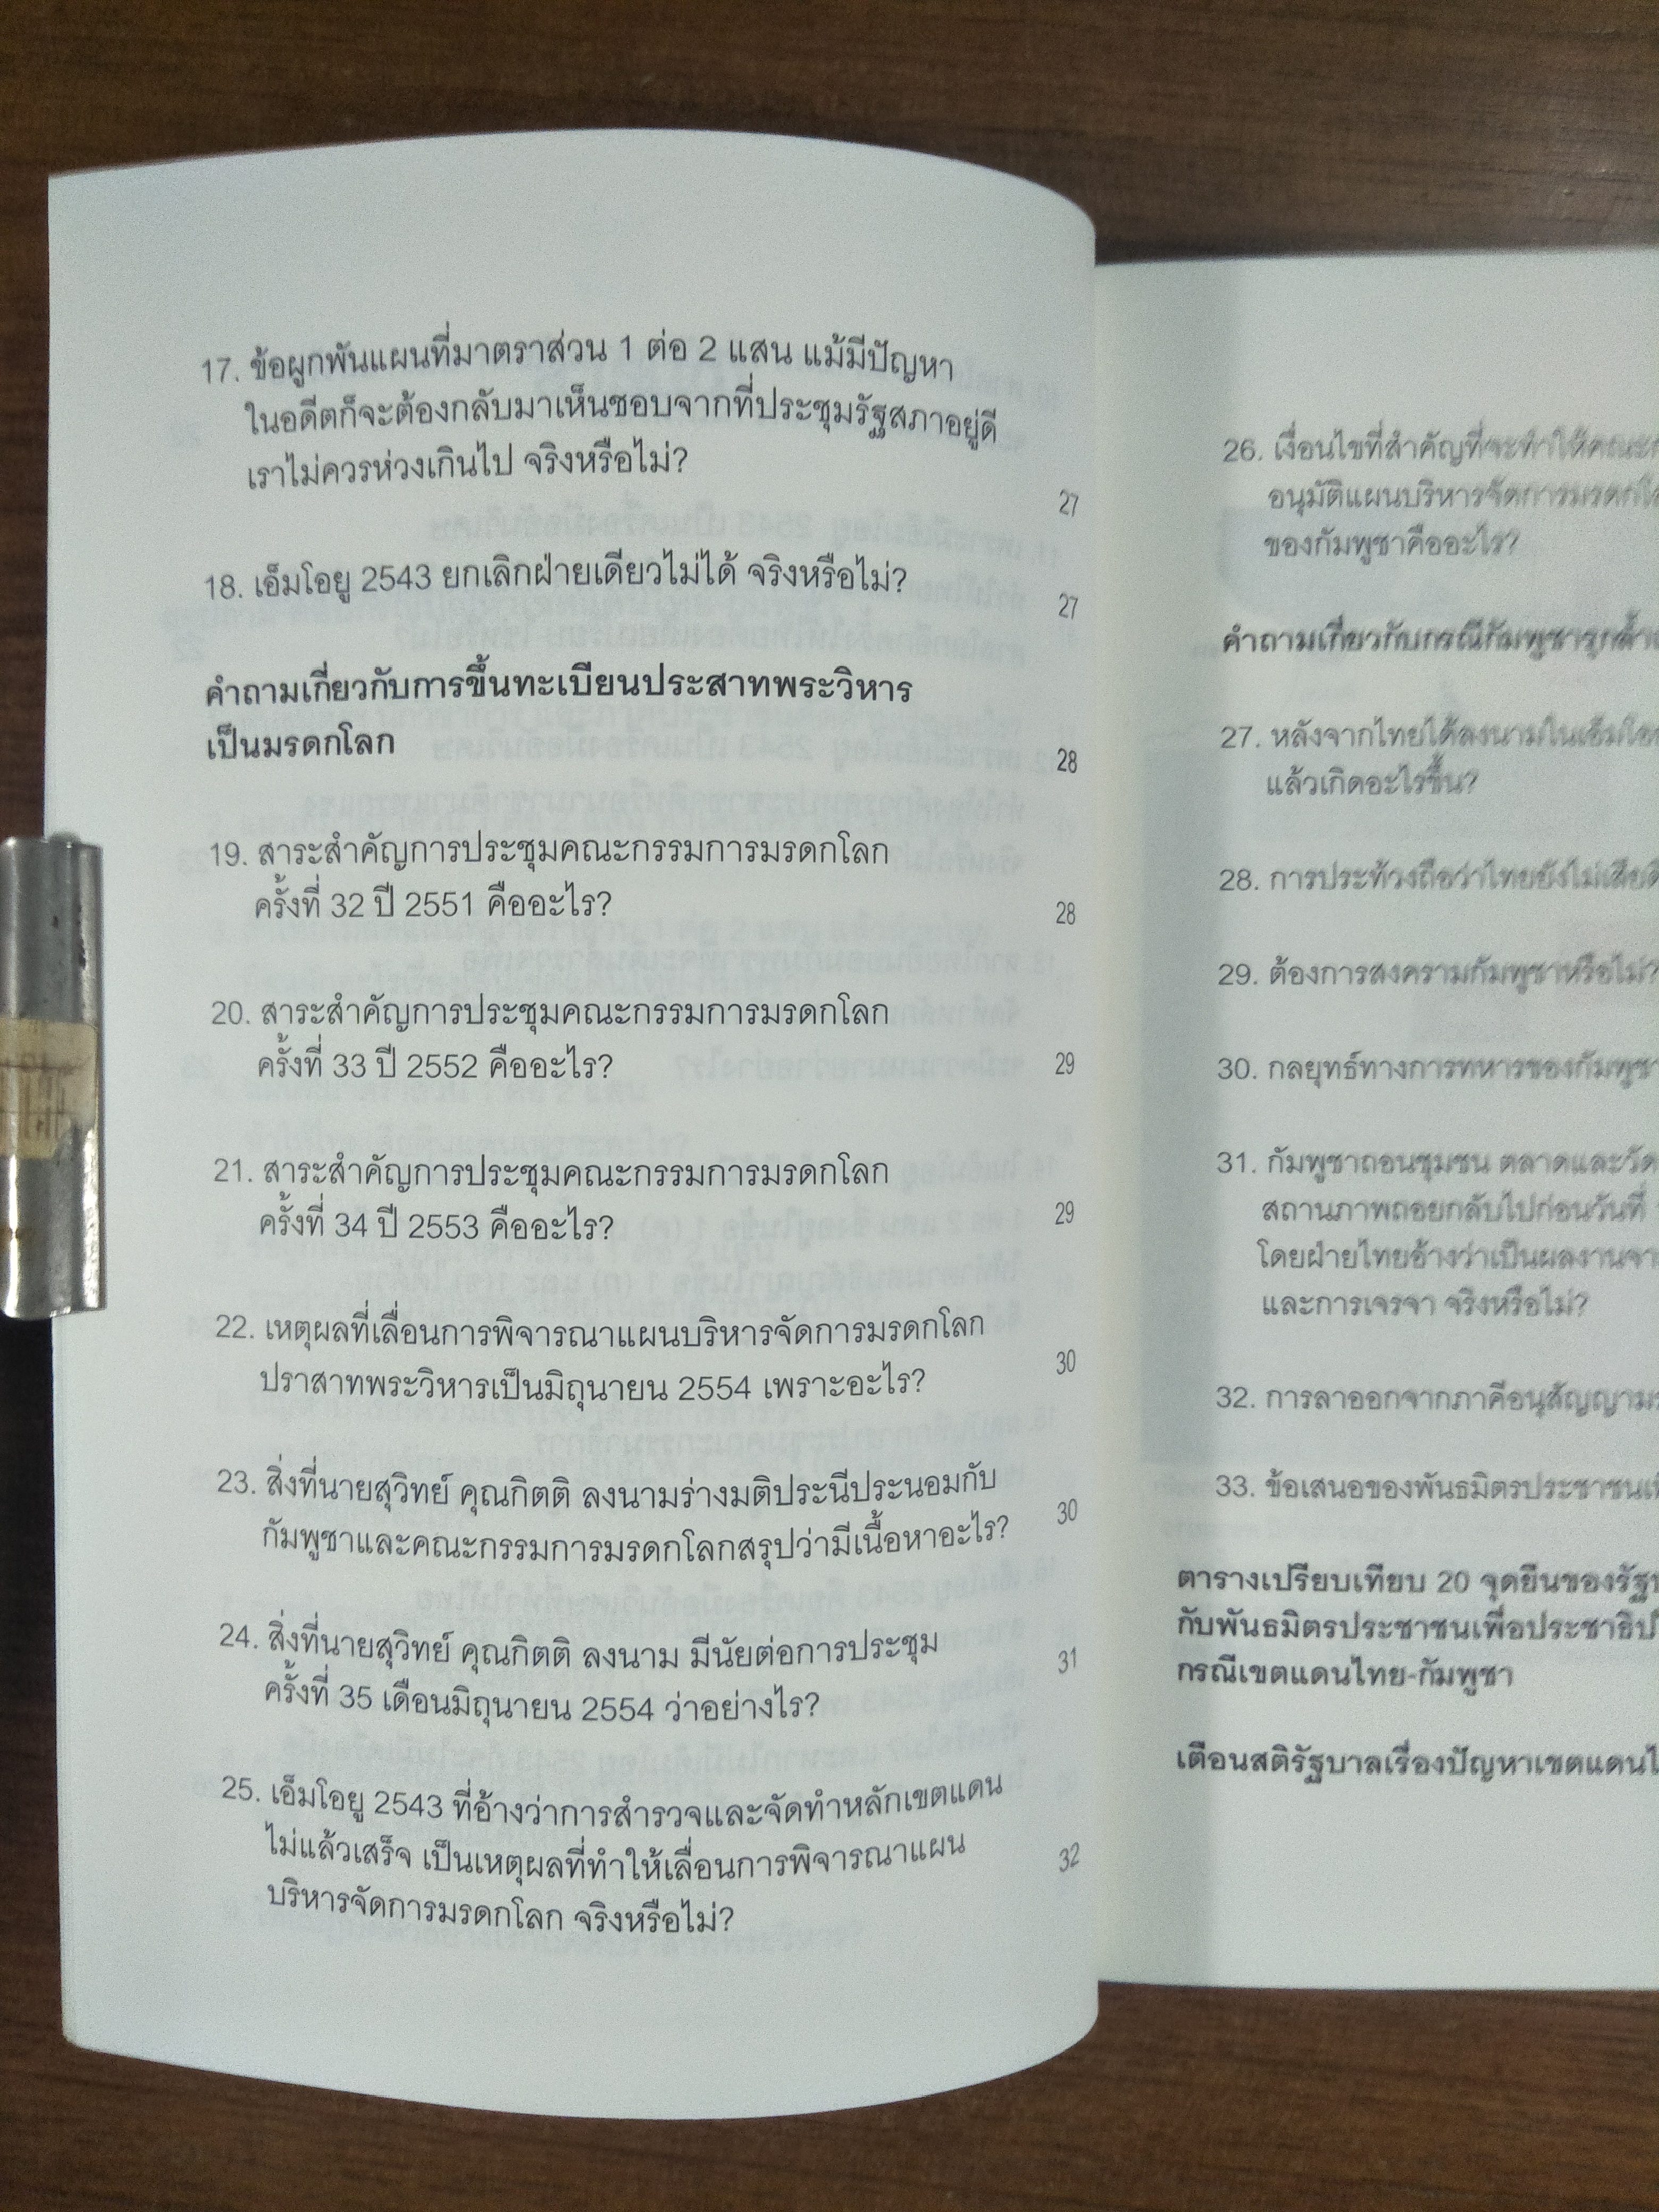 17. ข้อผูกพันแผนที่มาตราส่วน 1 ต่อ 2 แสน แม้มีปัญหา
ในอดีตก็จะต้องกลับมาเห็นชอบจากที่ประชุมรัฐสภาอยู่ดี
เราไม่ควรห่วงเกินไป จริงหรือไม่?
27
18. เอ็มโอยู 2543 ยกเลิกฝ่ายเดียวไม่ได้ จริงหรือไม่?
27
คำถามเกี่ยวกับการขึ้นทะเบียนประสาทพระวิหาร
เป็นมรดกโลก
28
19. สาระสำคัญการประชุมคณะกรรมการมรดกโลก
ครั้งที่ 32 ปี 2551 คืออะไร?
28
20. สาระสำคัญการประชุมคณะกรรมการมรดกโลก
ครั้งที่ 33 ปี 2552 คืออะไร?
29
21. สาระสำคัญการประชุมคณะกรรมการมรดกโลก
ครั้งที่ 34 ปี 2553 คืออะไร?
29
22. เหตุผลที่เลื่อนการพิจารณาแผนบริหารจัดการมรดกโลก
ปราสาทพระวิหารเป็นมิถุนายน 2554 เพราะอะไร?
30
23. สิ่งที่นายสุวิทย์ คุณกิตติ ลงนามร่างมติประนีประนอมกับ
กัมพูชาและคณะกรรมการมรดกโลกสรุปว่ามีเนื้อหาอะไร?
30
24. สิ่งที่นายสุวิทย์ คุณกิตติ ลงนาม มีนัยต่อการประชุม
ครั้งที่ 35 เดือนมิถุนายน 2554 ว่าอย่างไร?
31
25. เอ็มโอยู 2543 ที่อ้างว่าการสำรวจและจัดทำหลักเขตแดน
ไม่แล้วเสร็จ เป็นเหตุผลที่ทำให้เลื่อนการพิจารณาแผน
บริหารจัดการมรดกโลก จริงหรือไม่?
32
26. เงื่อนไขที่สำคัญที่จะทำให้คณะ
อนุมัติแผนบริหารจัดการมรดก
ของกัมพูชาคืออะไร?
คำถามเกี่ยวกับกรณีกัมพูชารุกล้ำ
27. หลังจากไทยได้ลงนามในเอ็มโอ
แล้วเกิดอะไรขึ้น?
28. การประท้วงถือว่าไทยยังไม่เสีย
29. ต้องการสงครามกัมพูชาหรือไม่?
30. กลยุทธ์ทางการทหารของกัมพูชา
31. กัมพูชาถอนชุมชน ตลาดและวัด
สถานภาพถอยกลับไปก่อนวันที่
โดยฝ่ายไทยอ้างว่าเป็นผลงานจา
และการเจรจา จริงหรือไม่?
32. การลาออกจากภาคีอนุสัญญา
33. ข้อเสนอของพันธมิตรประชาชน
ตารางเปรียบเทียบ 20 จุดยืนของรัฐ
กับพันธมิตรประชาชนเพื่อประชาธิป
กรณีเขตแดนไทย-กัมพูชา
เตือนสติรัฐบาลเรื่องปัญหาเขตแดน